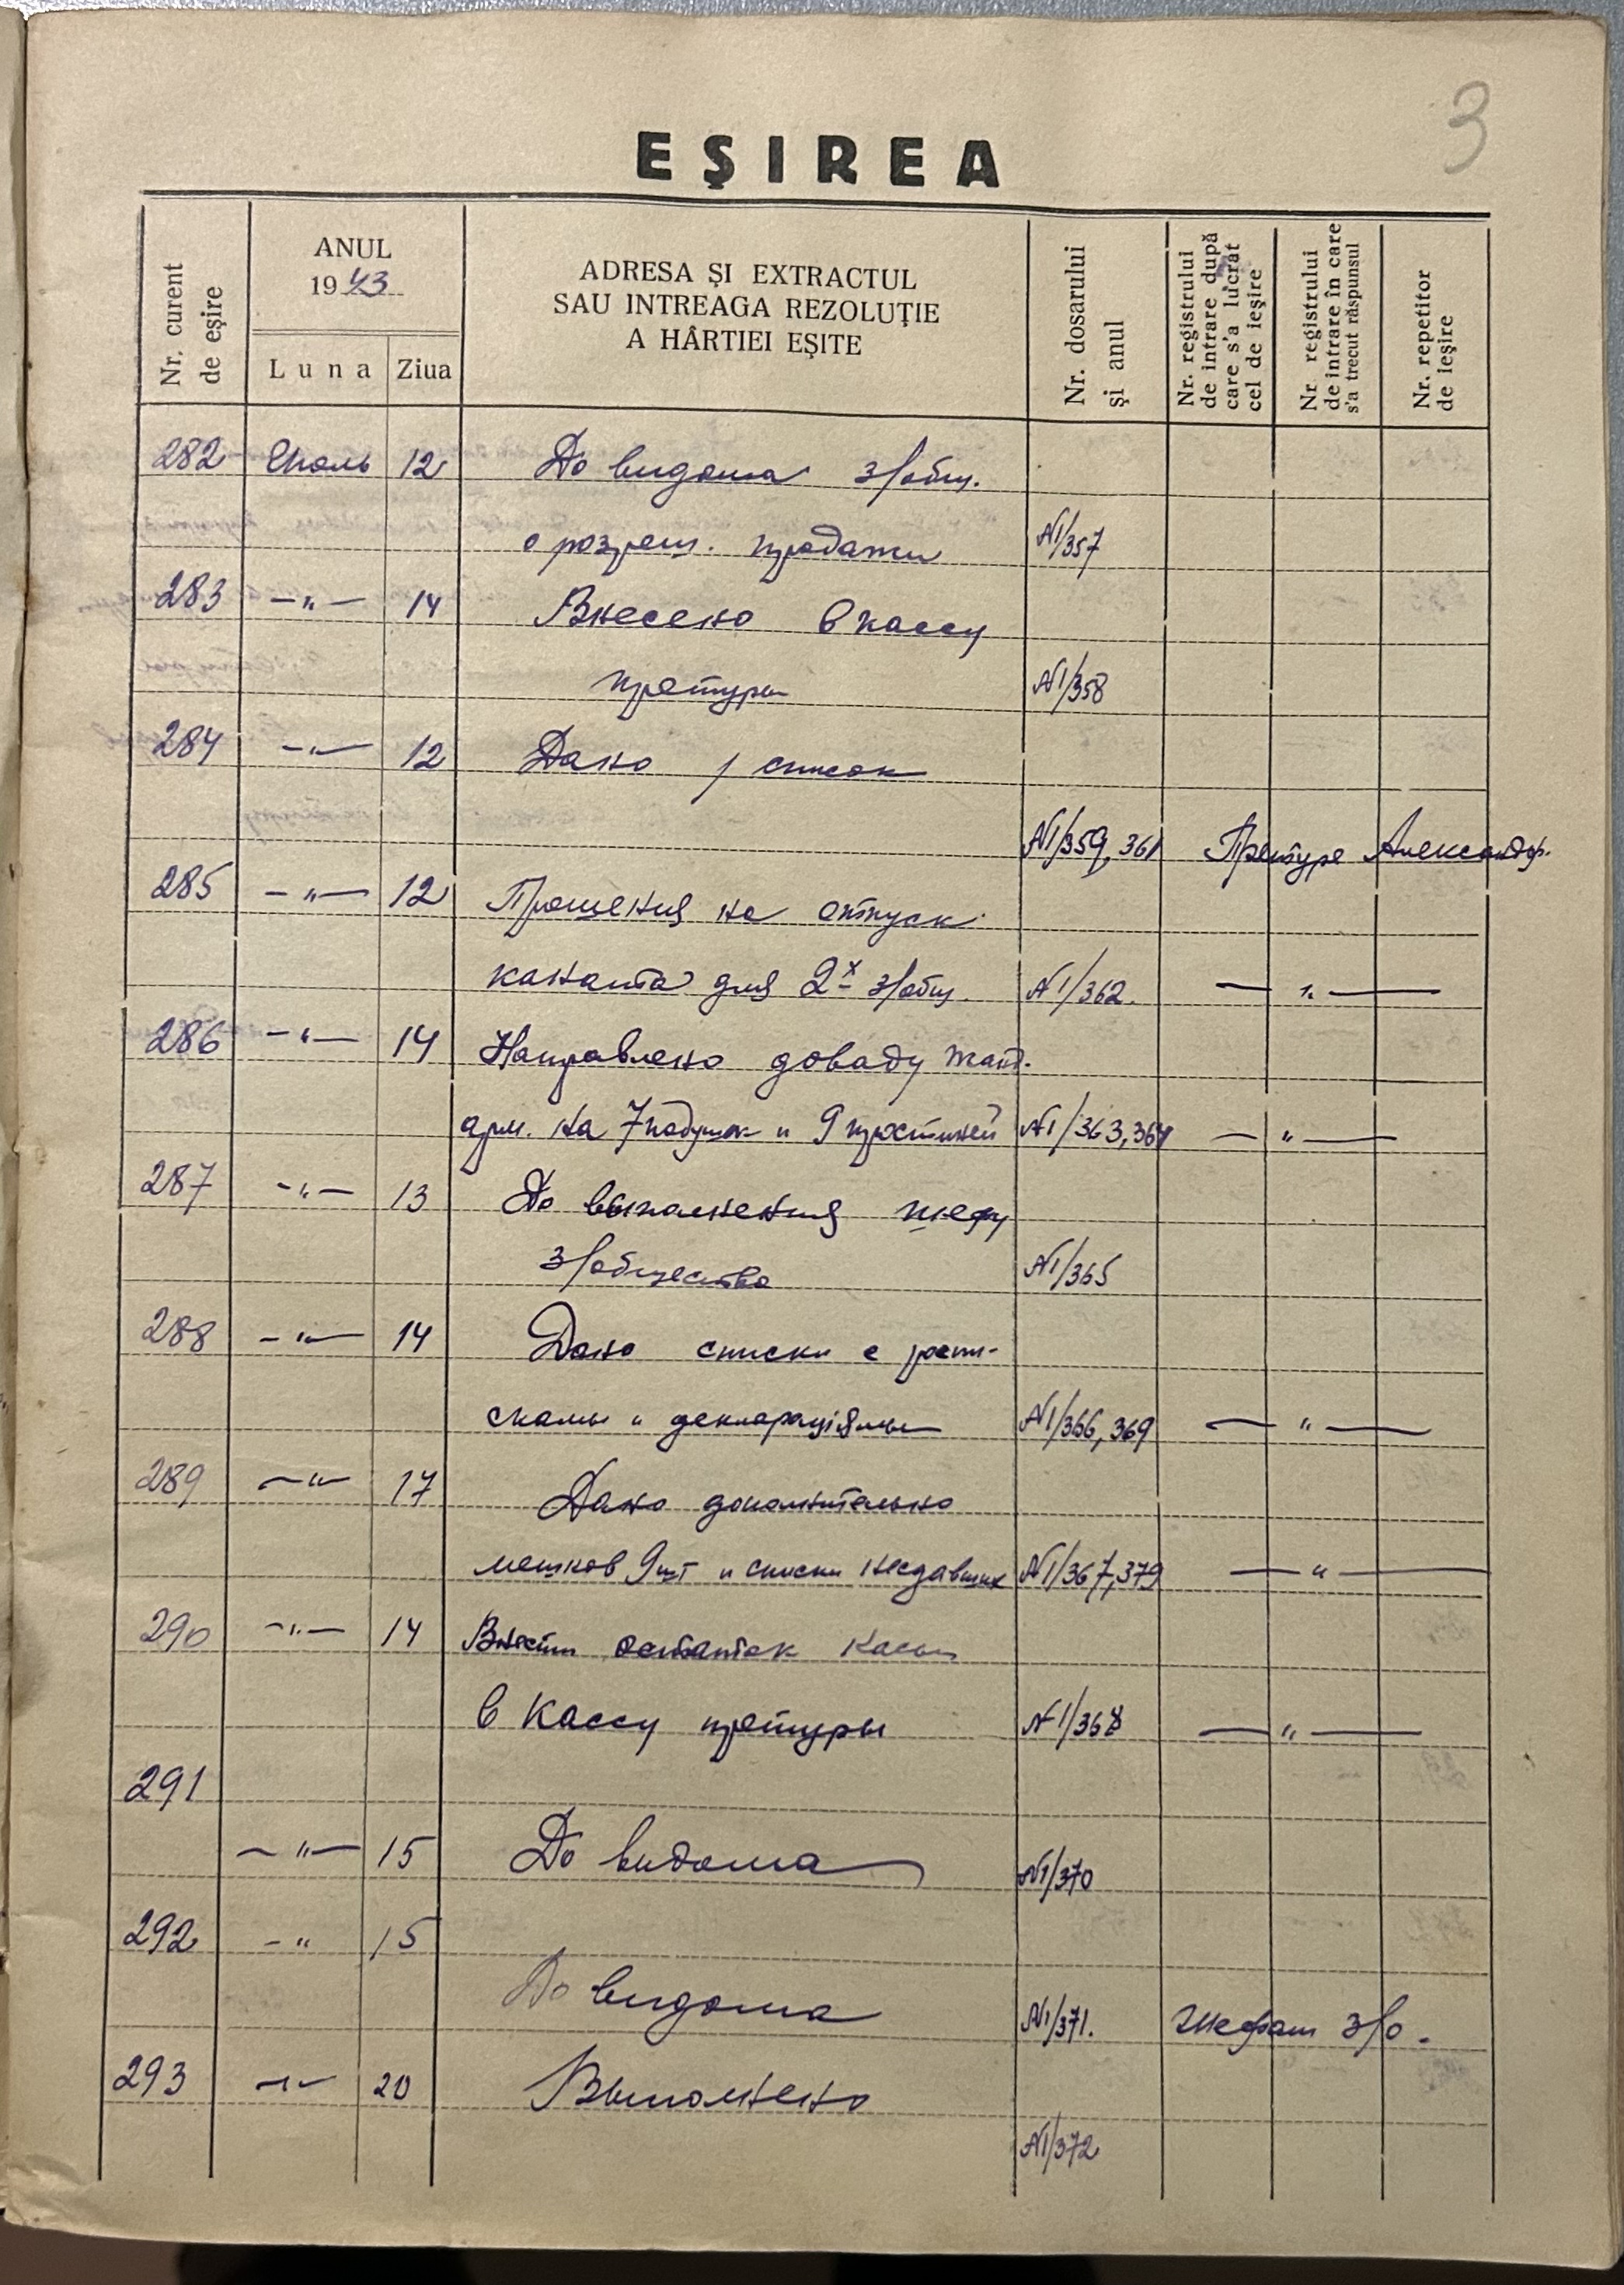 3
EȘIREA
Nr. curent
de eșire
ANUL
1943
Luna
Ziua
ADRESA ȘI EXTRACTUL
SAU INTREAGA REZOLUȚIE
A HÂRTIEI EȘITE
Nr. dosarului
și anul
Nr. registrului
de intrare după
care s'a lucrat
cel de ieșire
Nr registrului
de intrare în care
s'a trecut răspunsul
Nr. repetitor
de ieșire
282 Июль 12 До видома з/общ.
о розреш. продажи №1/357
283 -"- 14 Внесено в кассу
претуры №1/358
284 -"- 12 Дано 1 список
№1/359, 361 Претуре Александр.
285 -"- 12 Прошения на отпуск
каната для 2х з/общ. №1/362. -"-
286 -"- 14 Направлено доваду жанд.
арм. на 7 подушок и 9 простиней №1/363,364 -"-
287 -"- 13 До выполнения шефу
з/общества №1/365
288 -"- 14 Дано списки с роспи-
скамы и деклараціямы №1/366, 369 -"-
289 -"- 17 Дано дополнительно
мешков 9 шт и списки несдавших №1/367,379 -"-
290 -"- 14 Внести остаток касы
в Кассу претуры №1/368 -"-
291
-"- 15 До видома №1/370
292 -" 15
До видома №1/371. Шефам з/о.
293 -"- 20 Выполнено
№1/372